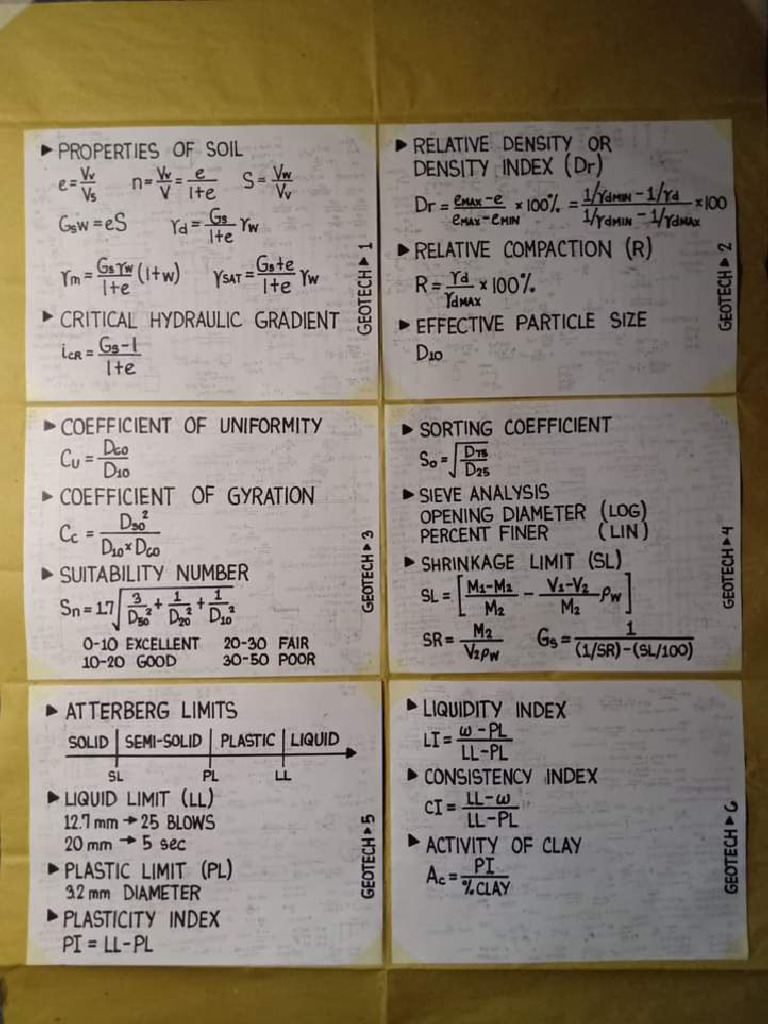 ► PROPERTIES OF SOIL
e = Vv/Vs   n = Vv/V = e/1+e   S = Vw/Vv
Gsw = eS   γd = Gs/1+e γw
γm = Gsγw/1+e (1+w)   γSAT = Gs+e/1+e γw
► CRITICAL HYDRAULIC GRADIENT
iCR = Gs-1/1+e
GEOTECH ► 1
► RELATIVE DENSITY OR
DENSITY INDEX (Dr)
Dr = eMAX-e/eMAX-eMIN × 100% = 1/γdMIN - 1/γd/1/γdMIN - 1/γdMAX × 100
► RELATIVE COMPACTION (R)
R = γd/γdMAX × 100%
► EFFECTIVE PARTICLE SIZE
D10
GEOTECH ► 2
► COEFFICIENT OF UNIFORMITY
Cu = D60/D10
► COEFFICIENT OF GYRATION
Cc = D30²/D10×D60
► SUITABILITY NUMBER
Sn = 1.7√3/D50² + 1/D20² + 1/D10²
0-10 EXCELLENT   20-30 FAIR
10-20 GOOD   30-50 POOR
GEOTECH ► 3
► SORTING COEFFICIENT
So = √D75/D25
► SIEVE ANALYSIS
OPENING DIAMETER (LOG)
PERCENT FINER (LIN)
► SHRINKAGE LIMIT (SL)
SL = [M1-M2/M2 - V1-V2/M2 ρw]
SR = M2/V2ρw   Gs = 1/(1/SR)-(SL/100)
GEOTECH ► 4
► ATTERBERG LIMITS
SOLID | SEMI-SOLID | PLASTIC | LIQUID
SL   PL   LL
► LIQUID LIMIT (LL)
12.7 mm → 25 BLOWS
20 mm → 5 sec
► PLASTIC LIMIT (PL)
3.2 mm DIAMETER
► PLASTICITY INDEX
PI = LL-PL
GEOTECH ► 5
► LIQUIDITY INDEX
LI = ω-PL/LL-PL
► CONSISTENCY INDEX
CI = LL-ω/LL-PL
► ACTIVITY OF CLAY
Ac = PI/%CLAY
GEOTECH ► 6